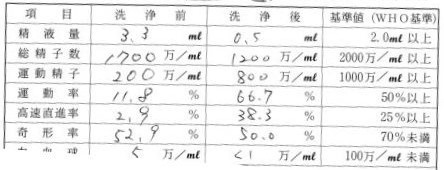 項目 洗浄前 洗浄後 基準値(WHO基準)
精液量 3.3 ml 0.5 ml 2.0ml以上
総精子数 1700 万/ml 1200 万/ml 2000万/ml以上
運動精子 200 万/ml 800 万/ml 1000万/ml以上
運動率 11.8 % 66.7 % 50%以上
高速直進率 2.9 % 38.3 % 25%以上
奇形率 52.9 % 50.0 % 70%未満
白血球 5 万/ml <1 万/ml 100万/ml未満